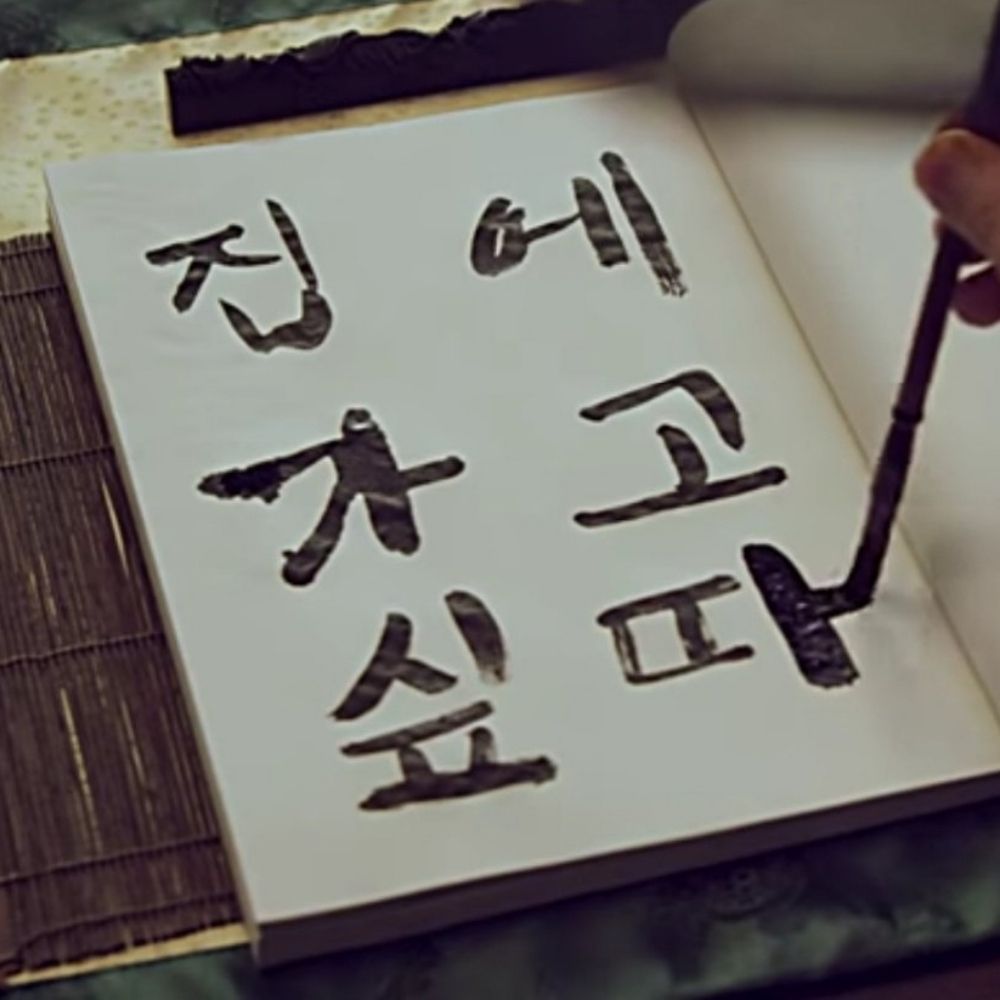 집에
가고
싶파